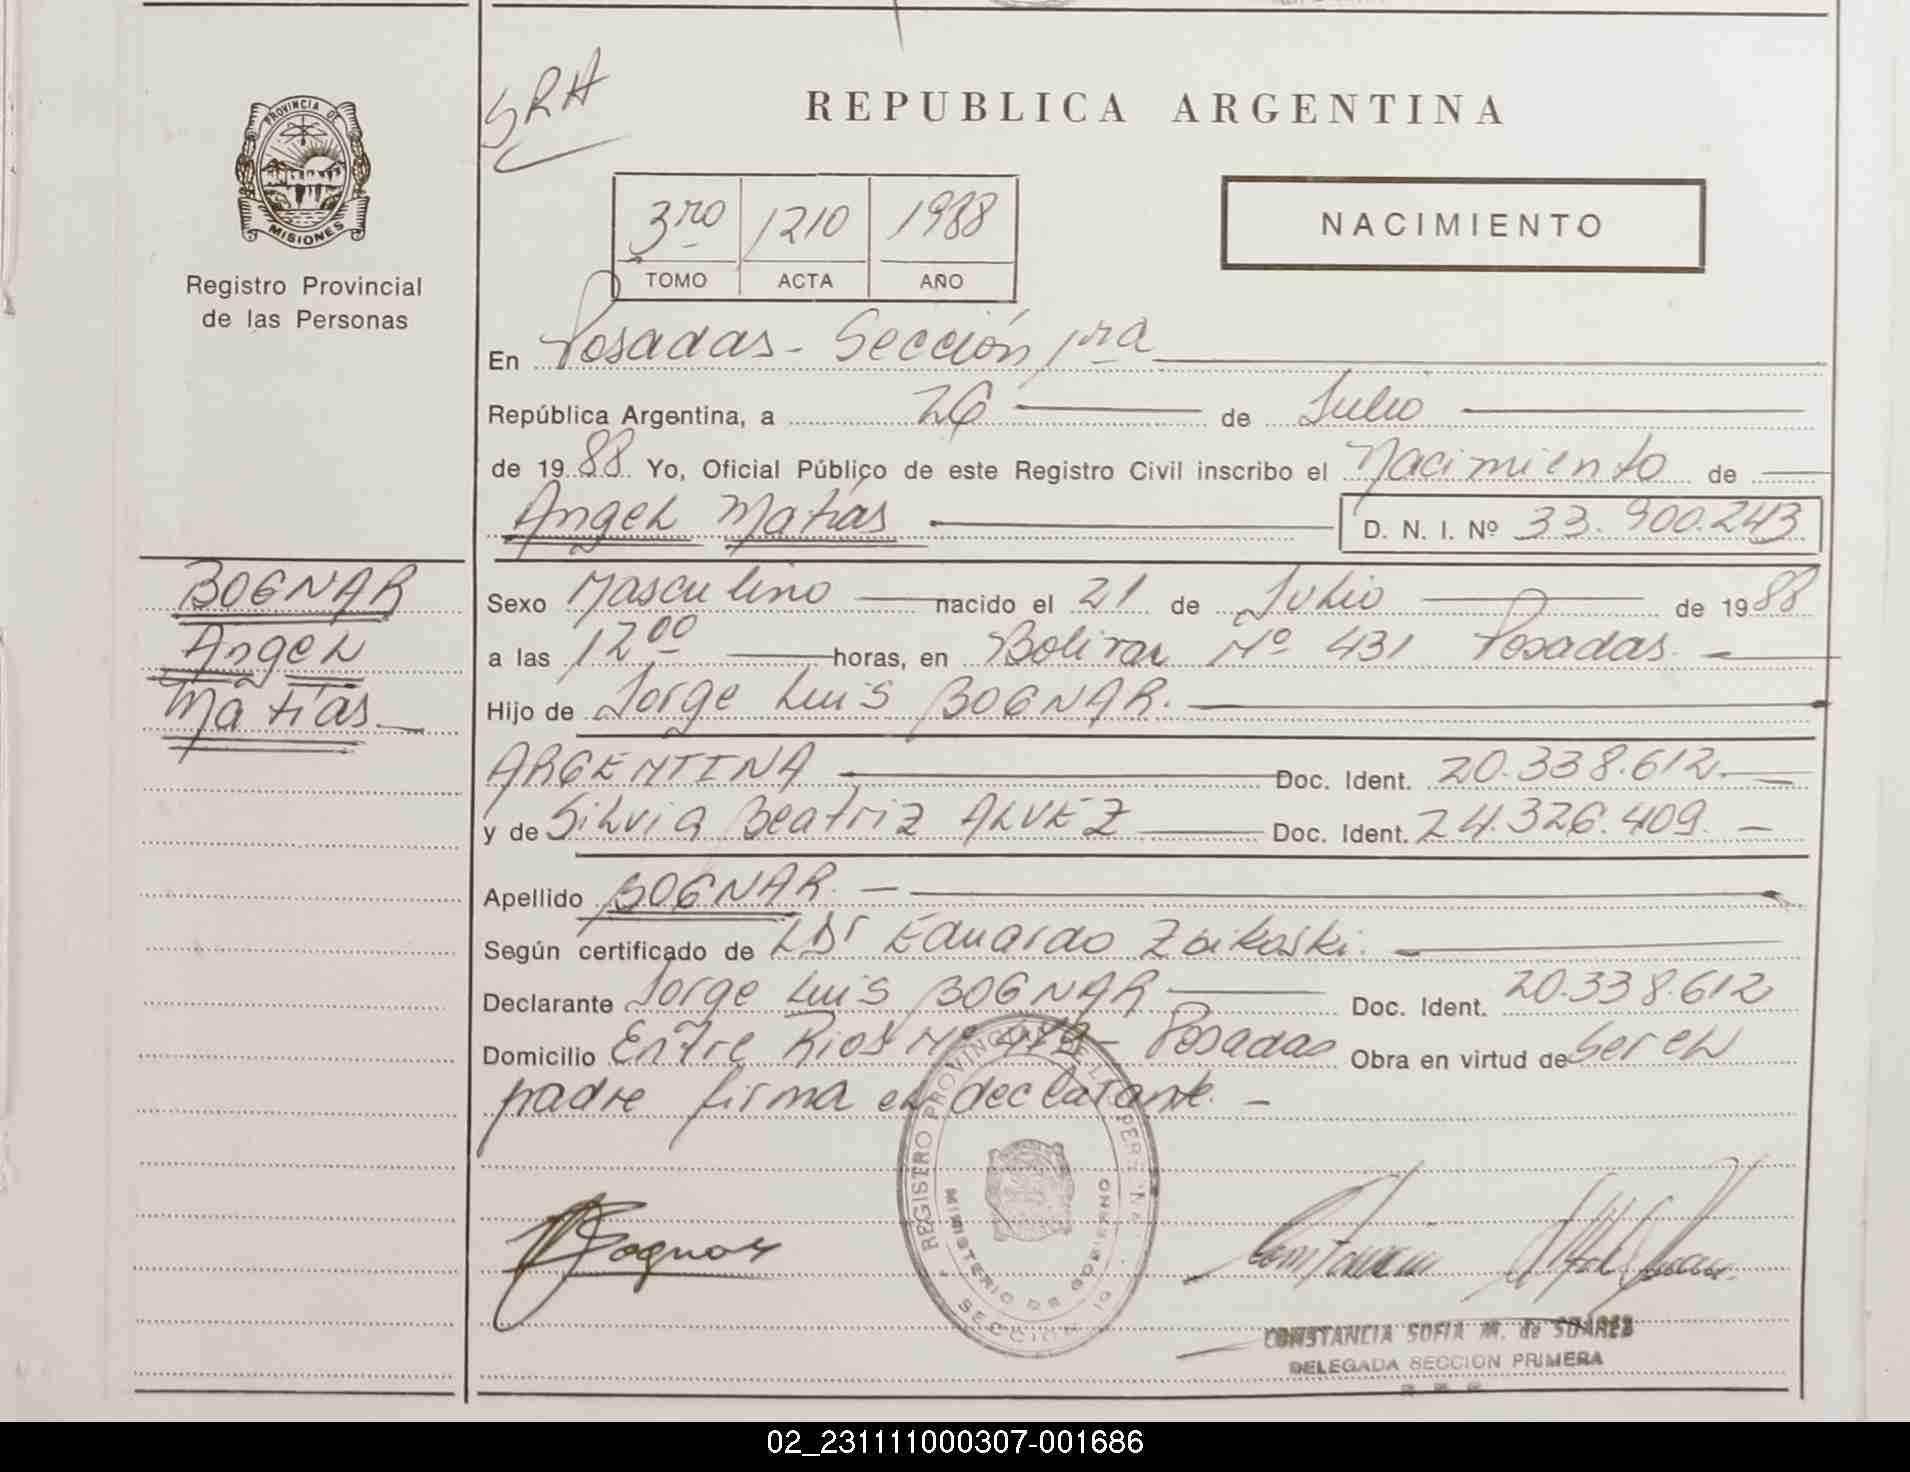 PROVINCIA DE
MISIONES
Registro Provincial
de las Personas
SRA
REPUBLICA ARGENTINA
3ro 1210 1988
TOMO ACTA AÑO
NACIMIENTO
En Posadas - Sección 1ra
República Argentina, a 26 de Julio
de 1988 Yo, Oficial Público de este Registro Civil inscribo el Nacimiento de
Angel Matías D. N. I. Nº 33.900.243
BOGNAR
Angel
Matías
Sexo Masculino nacido el 21 de Julio de 1988
a las 12 00 horas, en Bolivar Nº 431 Posadas.
Hijo de Jorge Luis BOGNAR.
ARGENTINA Doc. Ident. 20.338.612.
y de Silvia Beatriz ALVEZ Doc. Ident. 24.326.409.
Apellido BOGNAR.
Según certificado de Dr Eduardo Zoikoski.
Declarante Jorge Luis BOGNAR Doc. Ident. 20.338.612
Domicilio Entre Rios Nº - Posadas Obra en virtud de Ser el
padre firma el declarante. -
REGISTRO PROVINCIAL DE
MINISTERIO DE GOBIERNO
SECCION
Bognar
CONSTANCIA SOFIA M. de SUAREZ
DELEGADA SECCION PRIMERA
02_231111000307-001686